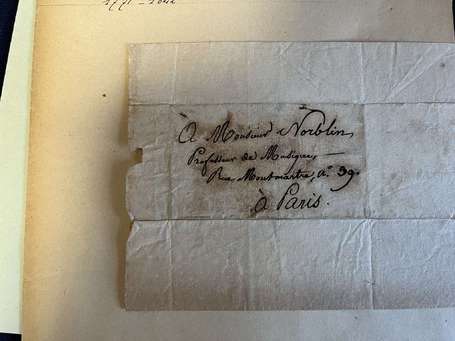 1771 - 1842
À Monsieur Norblin,
Professeur de Musique,
Rue Montmartre, n° 39.
à Paris.